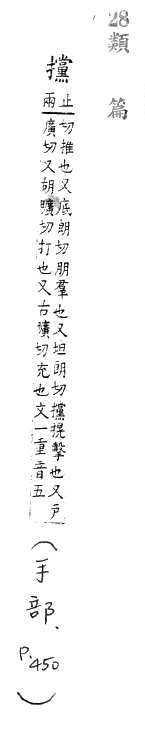 28
類篇
攩
止
兩切推也又底朗切朋羣也又坦朗切攩搃擊也又戶
廣切又胡曠切打也又古曠切充也文一重音五
(手部、P.450)